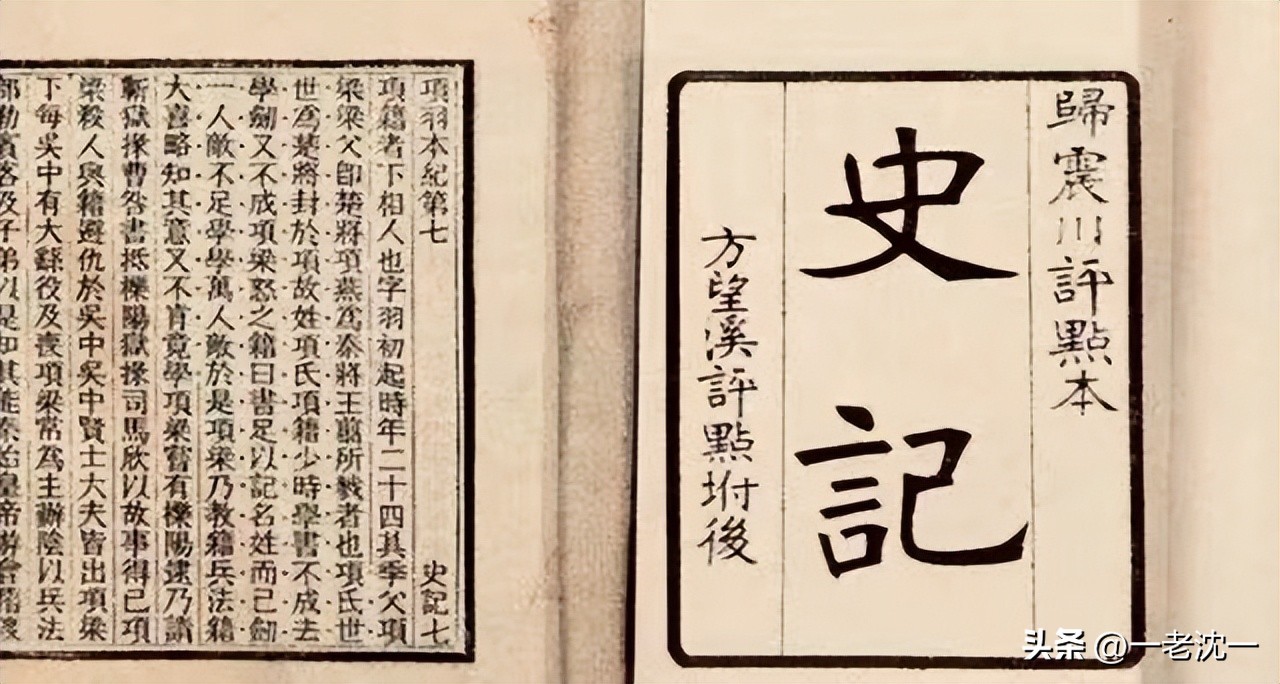 歸震川評點本
史記
方望溪評點坿後
項羽本紀第七 史記七
項籍者下相人也字羽初起時年二十四其季父項
梁梁父即楚將項燕爲秦將王翦所戮者也項氏世
世爲楚將封於項故姓項氏項籍少時學書不成去
學劍又不成項梁怒之籍曰書足以記名姓而已劍
一人敵不足學學萬人敵於是項梁乃教籍兵法籍
大喜略知其意又不肯竟學項梁嘗有櫟陽逮乃請
蘄獄掾曹咎書抵櫟陽獄掾司馬欣以故事得已項
梁殺人與籍避仇於吳中吳中賢士大夫皆出項梁
下每吳中有大繇役及喪項梁常爲主辦陰以兵法
部勒賓客及子弟以是知其能秦始皇帝
头条 @一老沈一